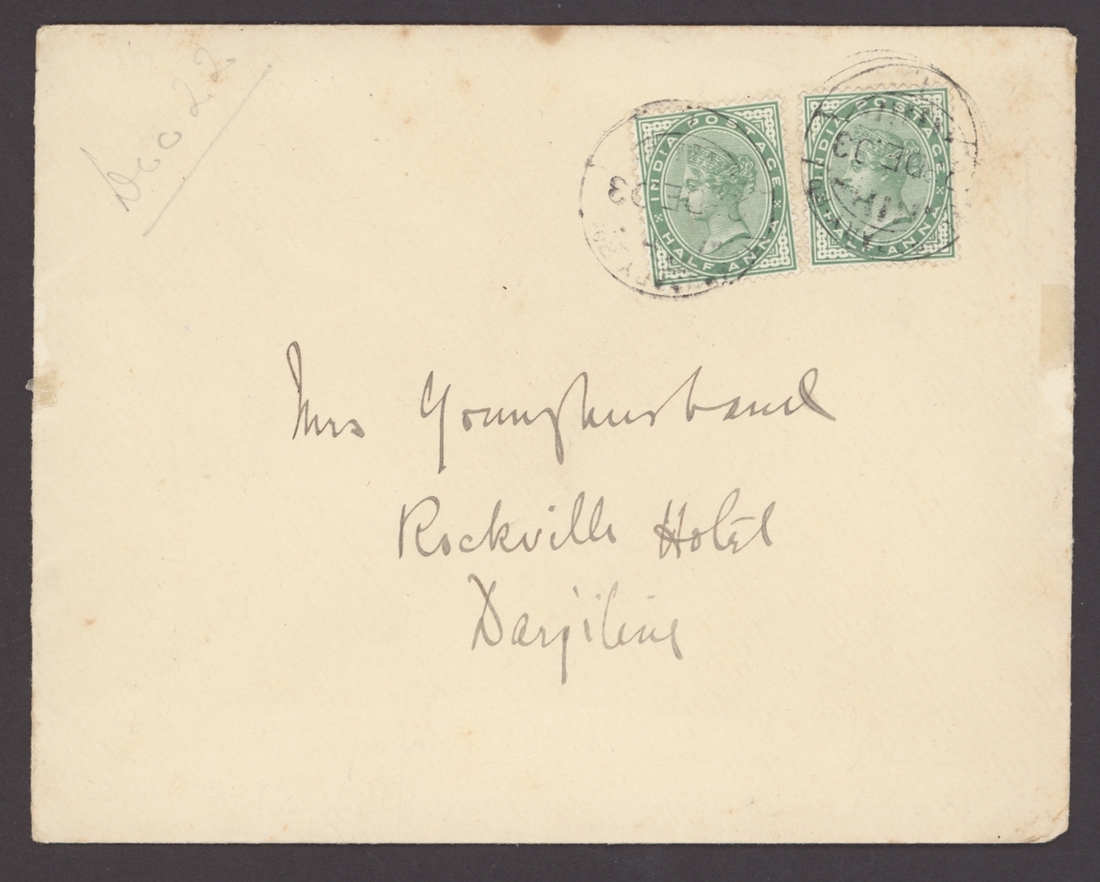 Dec 22
INDIA POSTAGE
HALF ANNA
INDIA POSTAGE
HALF ANNA
DE 03
DE 03
Mrs Younghusband
Rockville Hotel
Darjiling